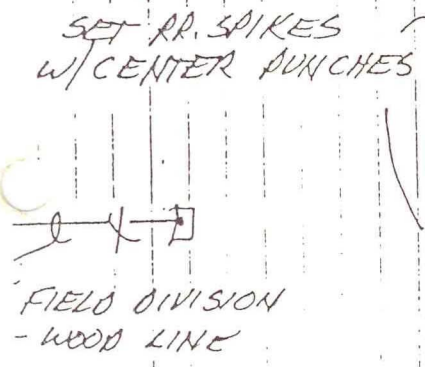 SET RR. SPIKES
W/ CENTER PUNCHES
FIELD DIVISION
- WOOD LINE